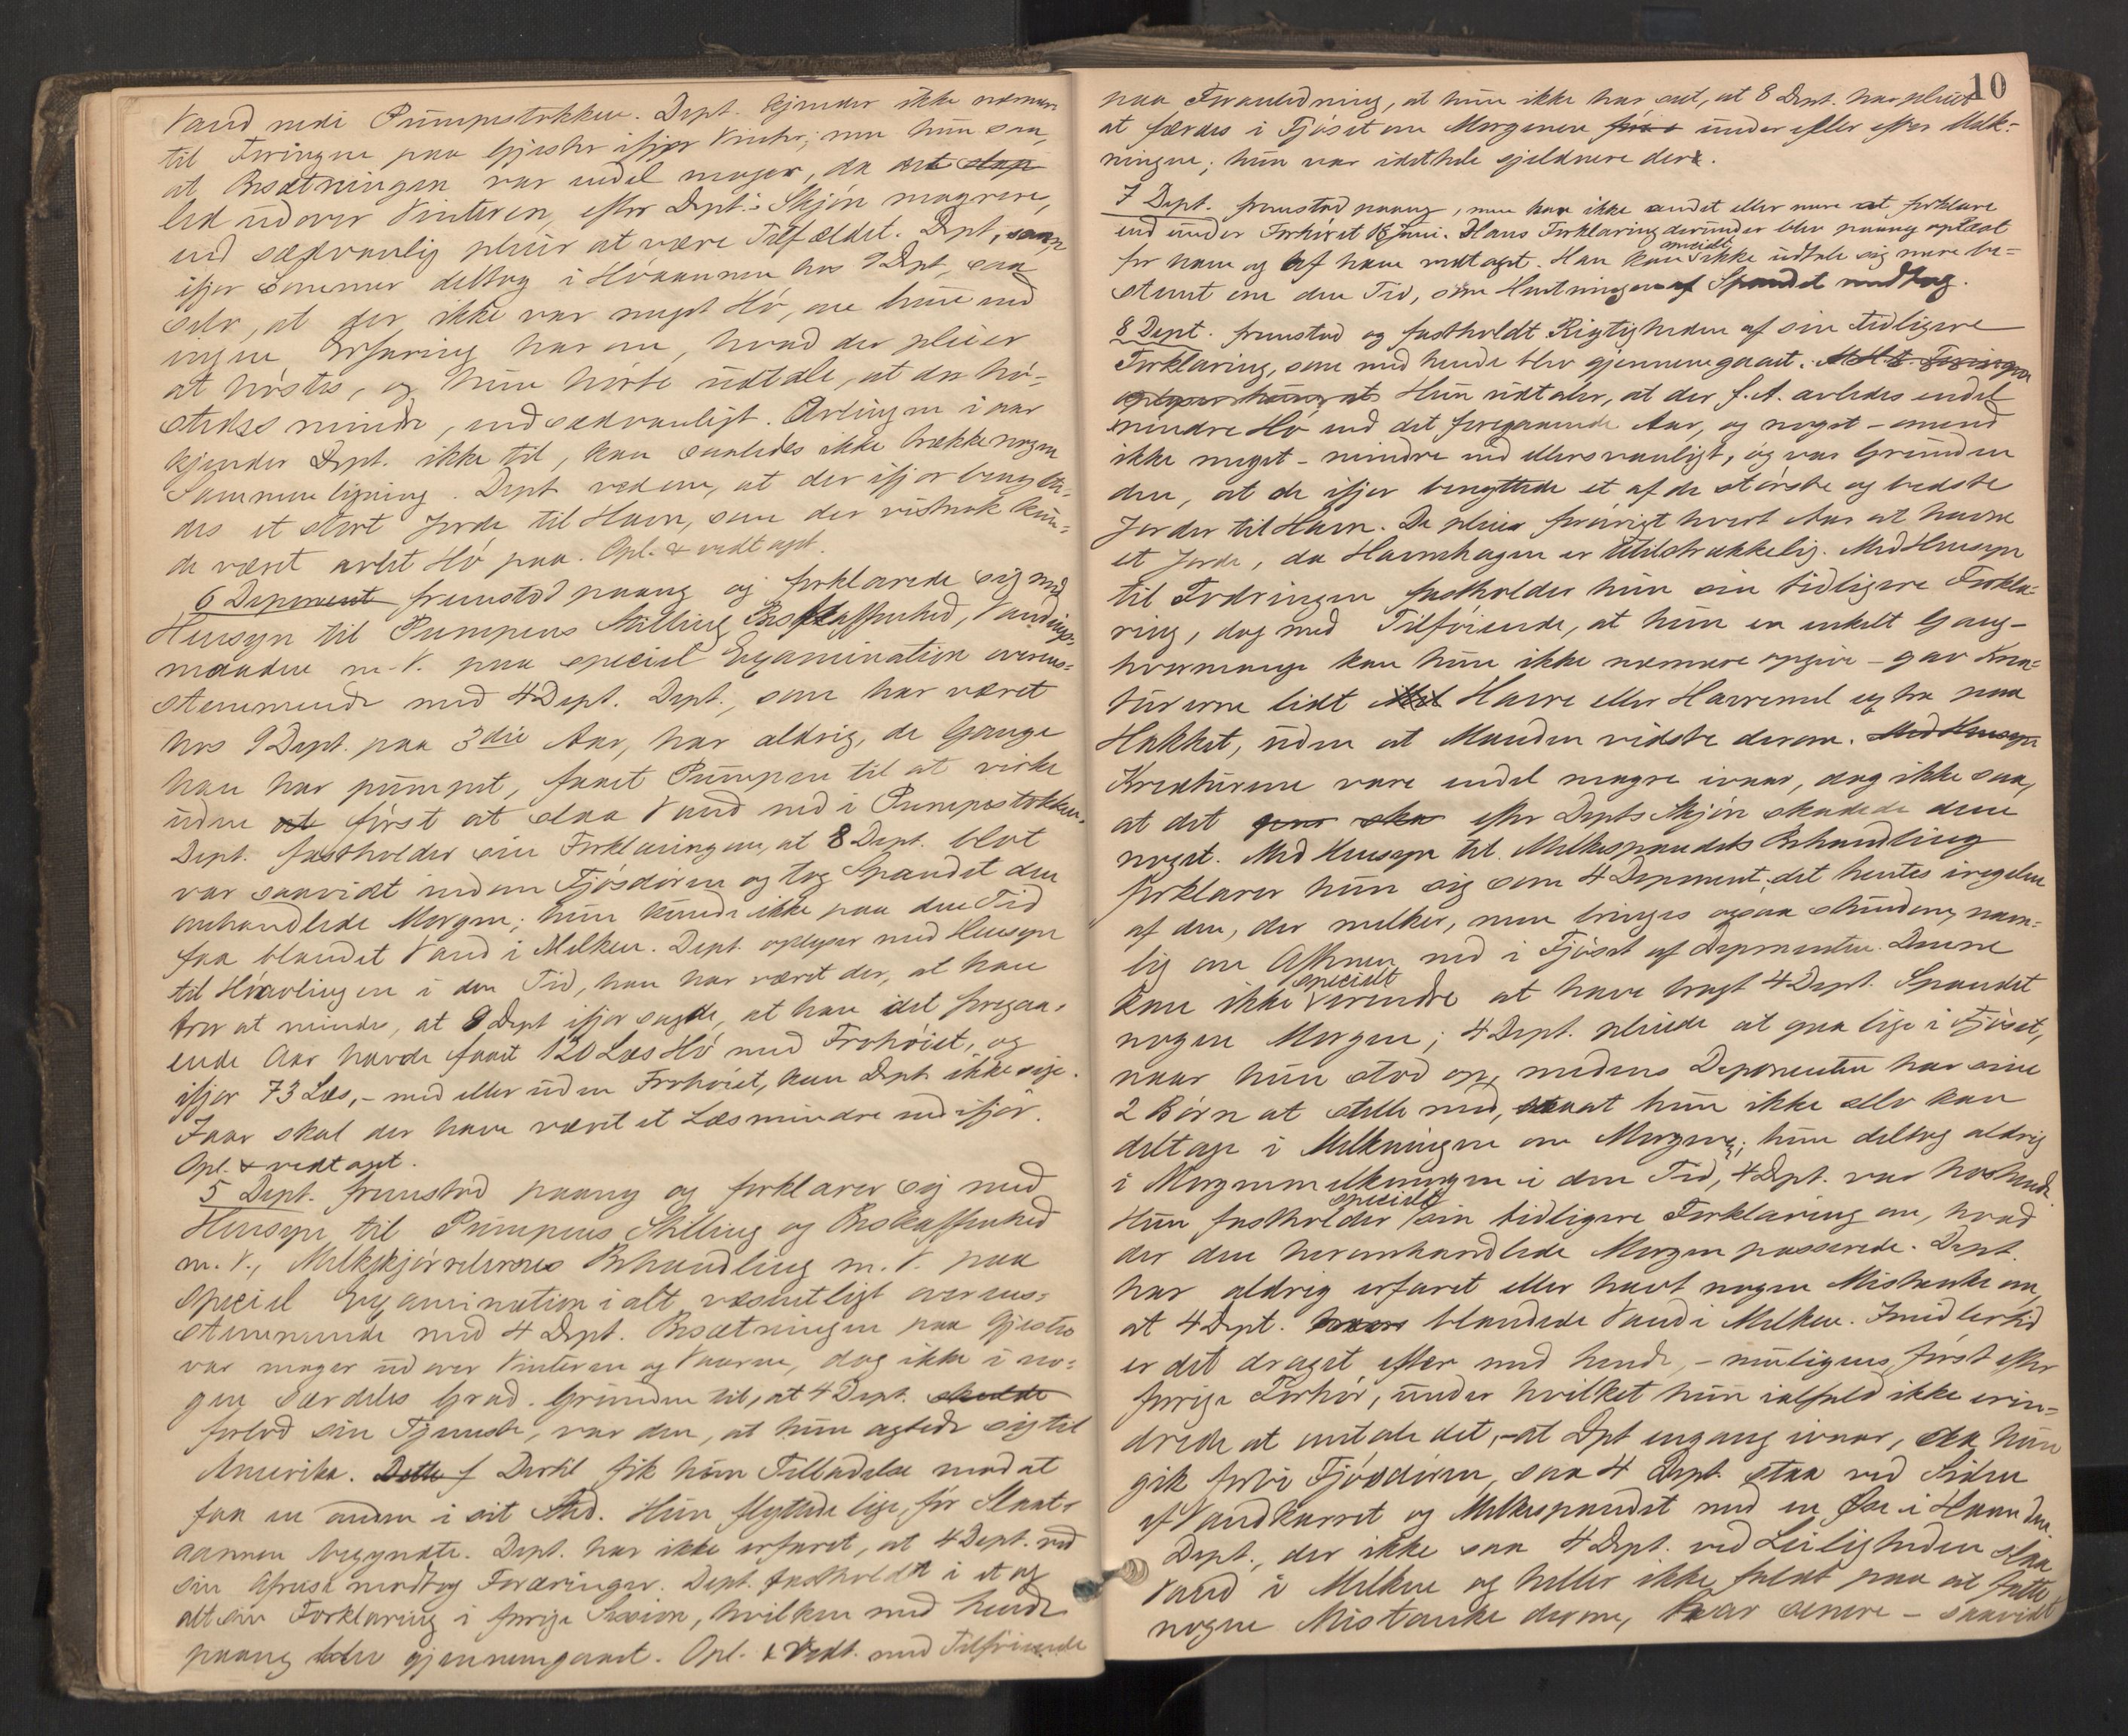 Vand nedi Pumpestokken. Dept. kjender ikke nærmere
til Foringen paa Gjestv ifjor Vinter; men hun saa,
at Besætningen var endel mager, da det
led udover Vinteren, efter Dept.s Skjøn magrere,
end sædvanlig pleier at være Tilfældet. Dept., som
ifjor Sommer deltog i Høaannen hos 9 Dept, saa
selv, at der ikke var meget Hø, om hun end
ingen Erfaring har om, hvad der pleier
at høstes, og hun hørte udtale, at der hø-
stedes mindre, end sædvanligt. Avlingen i aar
kjender Dept. ikke til, kan saaledes ikke trække nogen
Sammenligning. Dept. ved om, at der ifjor benytte-
des et stort Jorde til Havn, som der vistnok kun-
de været avlet Hø paa. Opl. & vedtaget.
6 Deponent fremstod paany og forklarede sig med
Hensyn til Pumpens Stilling, Beskaffenhed, Vandings-
maaden m. V. paa speciel Examination overens-
stemmende med 4 Dept. Dept., som har været
hos 9 Dept. paa 3die Aar, har aldrig, de Gange
han har pumpet, faaet Pumpen til at virke
uden at først at slaa Vand ned i Pumpestokken.
Dept. fastholder sin Forklaring om, at 8 Dept. blot
var saavidt indom Fjøsdøren og tog Spandet den
omhandlede Morgen; hun kunde ikke paa den Tid
faa blandet Vand i Melken. Dept. oplyser med Hensyn
til Høavlingen i den Tid, han har været der, at han
tror at mindes, at 9 Dept ifjor sagde, at han idet foregaa-
ende Aar havde faaet 120 Læs Hø med Frøhøiet, og
ifjor 73 Læs, - med eller uden Frøhøiet, kan Dept. ikke sige.
Iaar skal der have været et Læs mindre end ifjor.
Opl. & vedtaget.
5 Dept. fremstod paany og forklarer sig med
Hensyn til Pumpens Stilling og Beskaffenhed
m. V., Melkekjørrelernes Behandling m. V. paa
speciel Examination i alt væsentligt overens-
stemmende med 4 Dept. Besætningen paa Gjestv
var mager udover Vinteren og Vaaren, dog ikke i no-
gen særdeles Grad. Grunden til, at 4 Dept. skulde
forlod sin Tjeneste, var den, at hun agtede sig til
Amerika. Dette f Dertil fik hun Tilladelse mod at
faa en anden i sit Sted. Hun flyttede lige før Slaat-
aannen begyndte. Dept. har ikke erfaret, at 4 Dept. ved
sin Afreise modtog Foræringer. Dept. fastholdt i et og
alt sin Forklaring i forrige Session, hvilken med hende
paany blev gjennemgaaet. Opl. & Vedt. med Tilføiende
10
paa Foranledning, at hun ikke har set, at 8 Dept. har pleiet
at færdes i Fjøset om Morgenen før e under eller efter Melk-
ningen; hun var idethele sjeldnere der.
7 Dept. fremstod paany, men har ikke andet eller mere at forklare
end under Forhøret 18 Juni. Hans Forklaring derunder blev paany oplæst
for ham og af ham vedtaget. Han kan specielt ikke udtale sig mere be-
stemt om den Tid, som Hentningen af Spandet medtog.
8 Dept. fremstod og fastholdt Rigtigheden af sin tidligere
Forklaring, som med hende blev gjennemgaaet. M. H. t. Foringen
oplyser hun, at Hun udtaler, at der f. A. avledes endel
mindre Hø end det foregaaende Aar, og noget - omend
ikke meget - mindre end ellers vanligt, og var Grunden
den, at de ifjor benyttede et af de største og bedste
Jorder til Havn. De pleier forøvrigt hvert Aar at havne
et Jorde, da Havnehagen er utilstrækkelig. Med Hensyn
til Fodringen fastholder hun sin tidligere Forkla-
ring, dog med Tilføiende, at hun en enkelt Gang -
hvormange kan hun ikke nærmere opgive - gav Krea-
turerne lidt Havre eller Havremel extra paa
Hakket, uden at Manden vidste derom. Med Hensyn
Kreaturene vare endel magre ivaar, dog ikke saa,
at det efter Depts Skjøn skadede dem
noget. Med Hensyn til Melkespandets Behandling
forklarer hun sig som 4 Deponent; det hentes iregelen
af den, der melker, men bringes ogsaa stundom, nem-
lig om Aftenen, ned i Fjøset af Deponenten. Denne
kan ikke specielt erindre at have bragt 4 Dept. Spandet
nogen Morgen; 4 Dept. pleiede at gaa lige i Fjøset,
naar hun stod op, medens Deponenten har sine
2 Børn at stelle med, saa at hun ikke selv kan
deltage i Melkningen om Morgenen; hun deltog aldrig
i Morgenmelkningen i den Tid, 4 Dept. var hos hende.
Hun fastholder specielt sin tidligere Forklaring om, hvad
der den heromhandlede Morgen passerede. Dept.
har aldrig erfaret eller havt nogen Mistanke om,
at 4 Dept. blandede Vand i Melken. Imidlertid
er det draget efter med hende, - muligens først efter
forrige Forhør, under hvilket hun ialfald ikke erin-
drede at omtale det, - at Dpt engang ivaar, da hun
gik forbi Fjøsdøren, saa 4 Dept. staa ved Siden
af Vandkarret og Melkespandet med en Øse i Haanden.
Dept., der ikke saa 4 Dept. ved Leiligheden slaa
Vand i Melken og heller ikke faldt paa at fatte
nogen Mistanke derom, har senere - saavidt